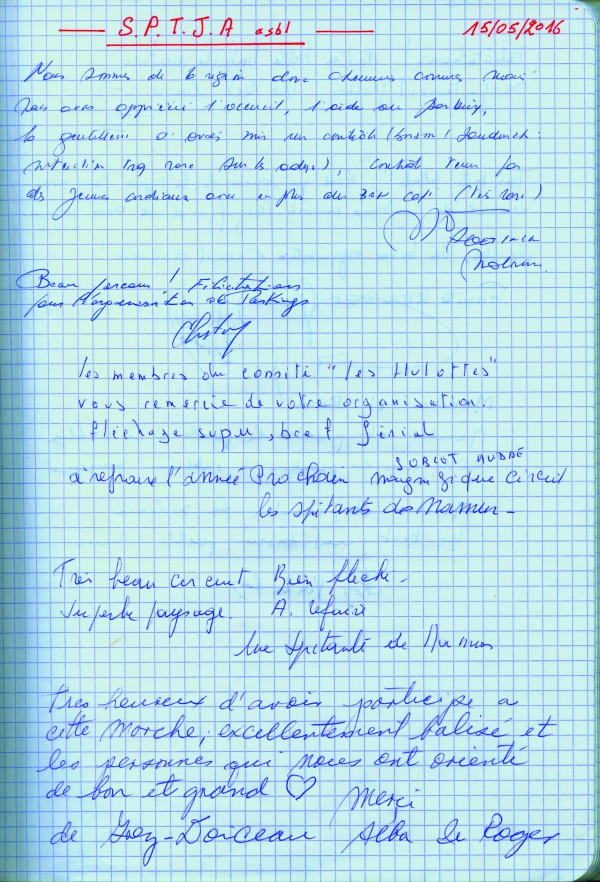 S.P.T.J.A asbl 15/05/2016
Nous sommes de la région donc chemins connus mais
nous avons apprécié l'accueil, l'aide au parking,
la gentillesse d'avoir mis un contrôle (boisson / Sandwich :
très rare sur les), contrôle tenu par
des jeunes cordiaux avec en plus du café (très rare)
Beau parcours ! Félicitations
pour l'organisation de Parkings
Les membres du comité "les Hulottes"
vous remercie de votre organisation.
fléchage super, bref génial
SUBLOT ANDRÉ
à refaire l'année Prochain magnifique circuit
les Spitants de Namur -
Très beau circuit Bien fléché -
Superbe paysage. A refaire
Une Spitante de Namur
Très heureux d'avoir participe a
cette Marche, excellentement balisé et
les personnes qui nous ont orienté
de bon et grand ♡ Merçi
de Grez-Doiceau Alba de Roger